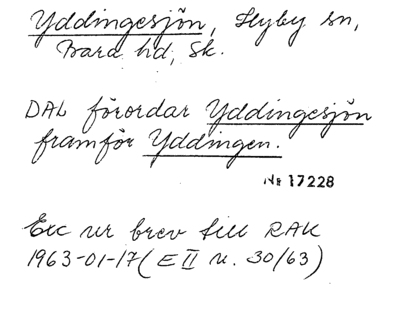 Yddingesjön, Hyby sn,
Bara hd, Sk.
DAL förordar Yddingesjön
framför Yddingen.
No 17228
Exc ur brev till RAK
1963-01-17 (E II u. 30/63)